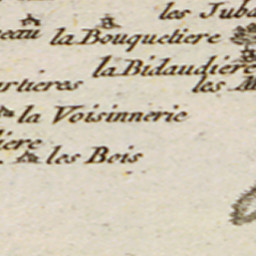 les Juba
eau la Bouquetiere
la Bidaudiere
artieres les M
la Voisinnerie
iere
les Bois